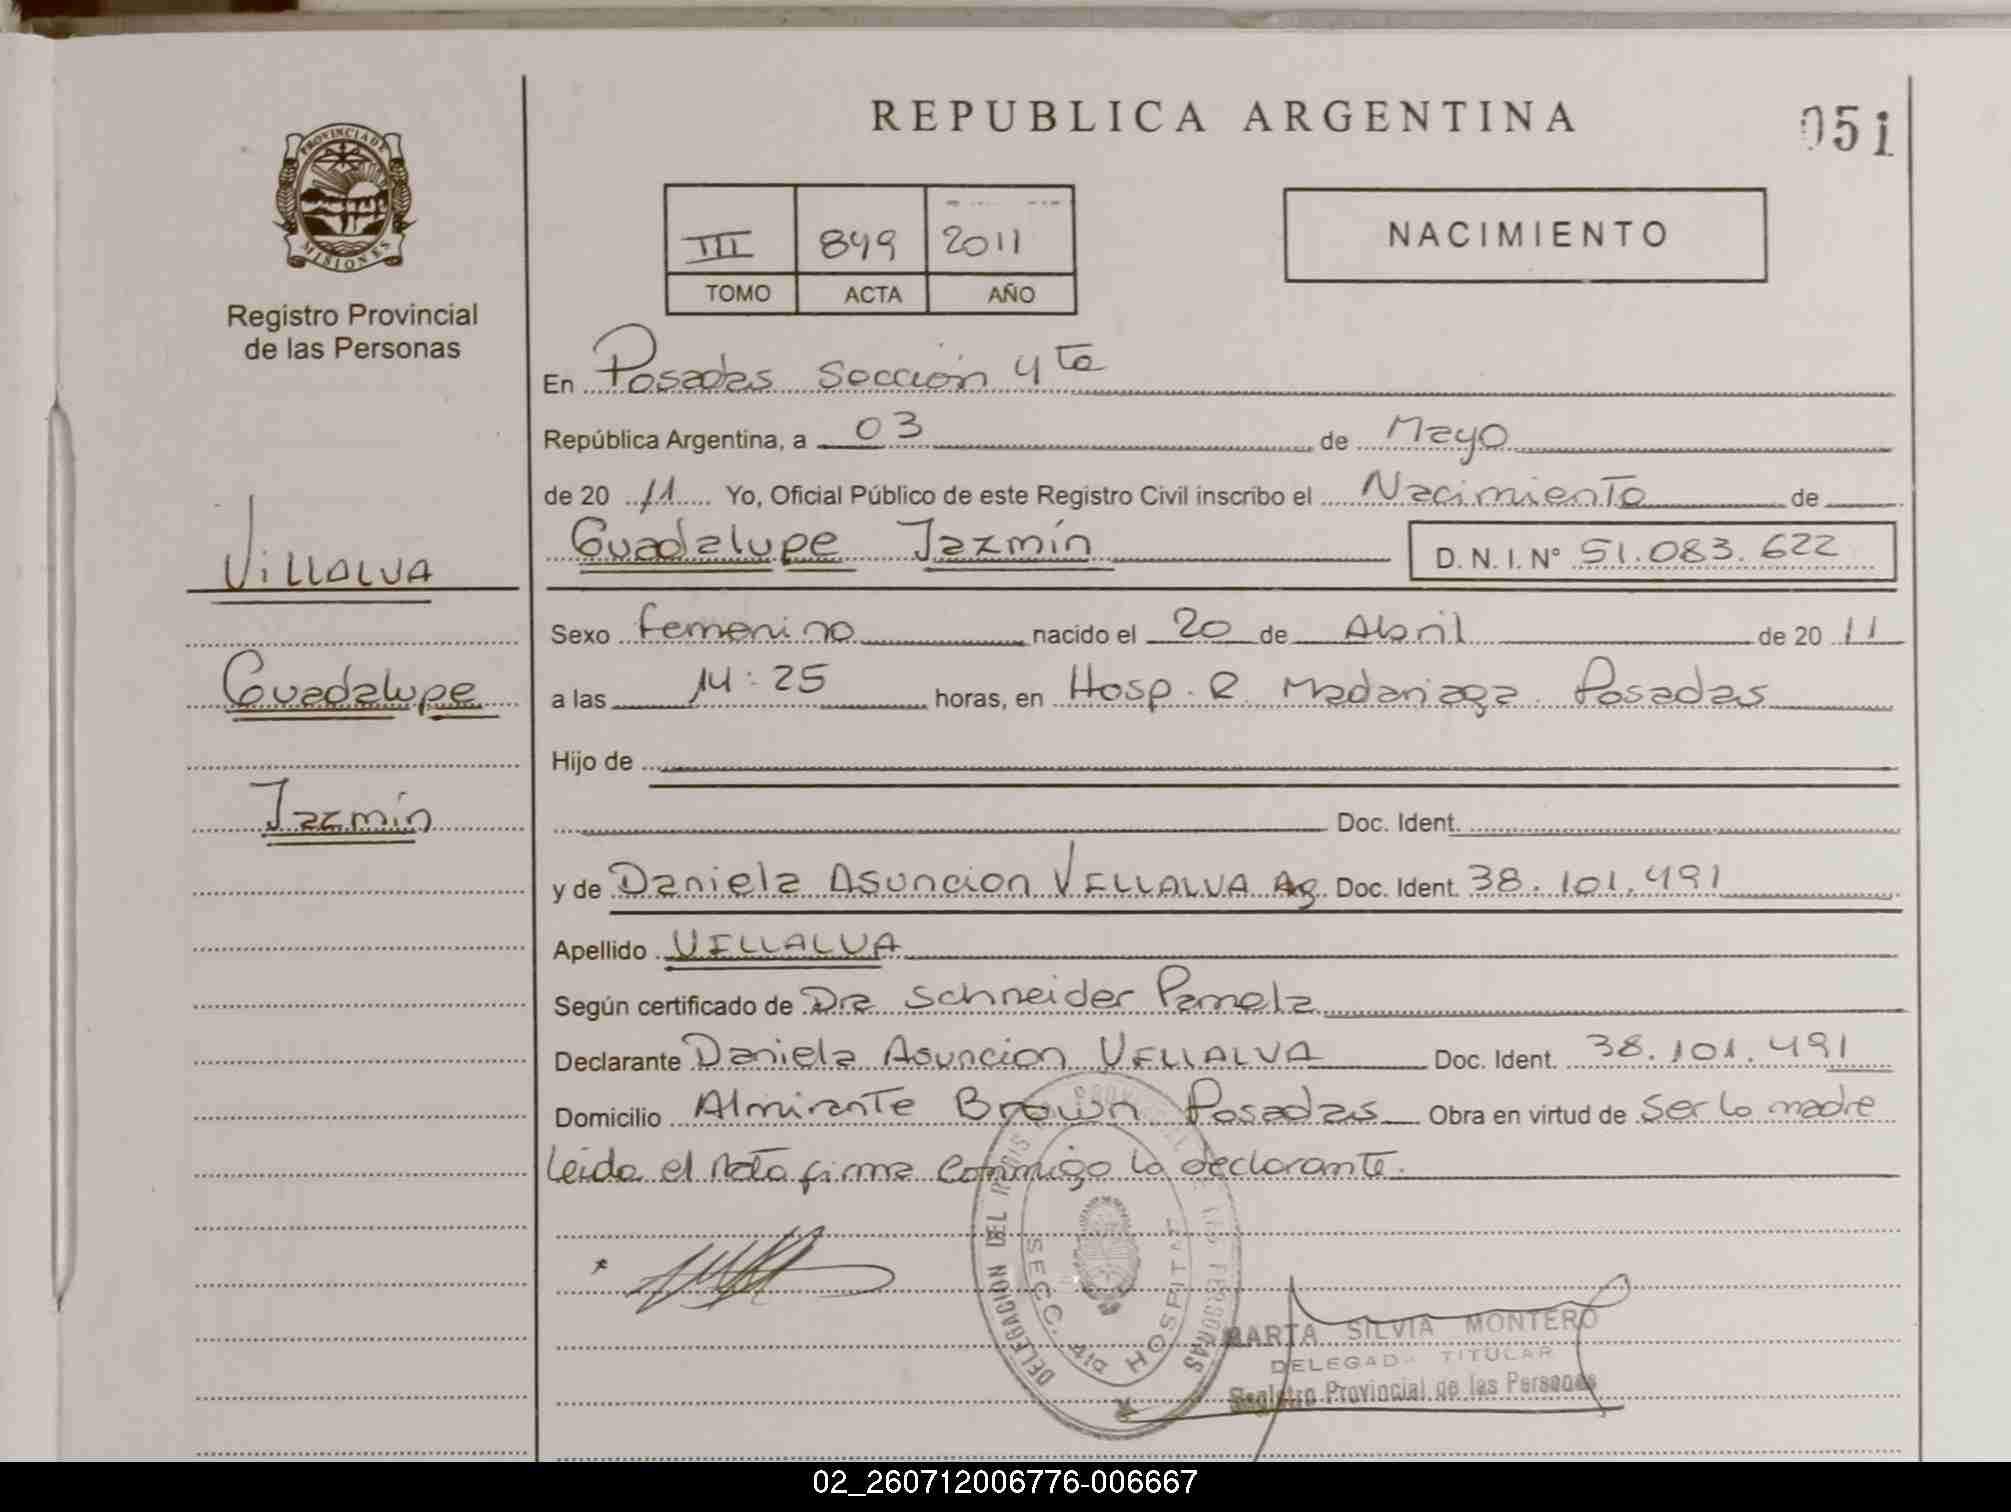 REPUBLICA ARGENTINA
051
PROVINCIA DE
MISIONES
Registro Provincial
de las Personas
III 849 2011
TOMO ACTA AÑO
NACIMIENTO
En Posadas Sección 4ta
República Argentina, a 03 de Mayo
de 20 11 Yo, Oficial Público de este Registro Civil inscribo el Nacimiento de
Guadalupe Jazmín D. N. I. Nº 51.083.622
VILLALVA
Sexo femenino nacido el 20 de Abril de 20 11
Guadalupe
a las 14:25 horas, en Hosp. R. Madariaga. Posadas
Hijo de
Jazmín
Doc. Ident.
y de Daniela Asuncion VILLALVA Ag. Doc. Ident. 38.101.491
Apellido VILLALVA
Según certificado de Dra Schneider Pamela
Declarante Daniela Asuncion VILLALVA Doc. Ident. 38.101.491
Domicilio Almirante Brown Posadas Obra en virtud de ser la madre
leida el Acta firma conmigo la declarante.
DELEGACION DEL REGIS PROVINCIAL DE LAS PERSONAS
SECC. HOSPITAL
MARTA SILVIA MONTERO
DELEGADA TITULAR
Registro Provincial de las Personas
02_260712006776-006667